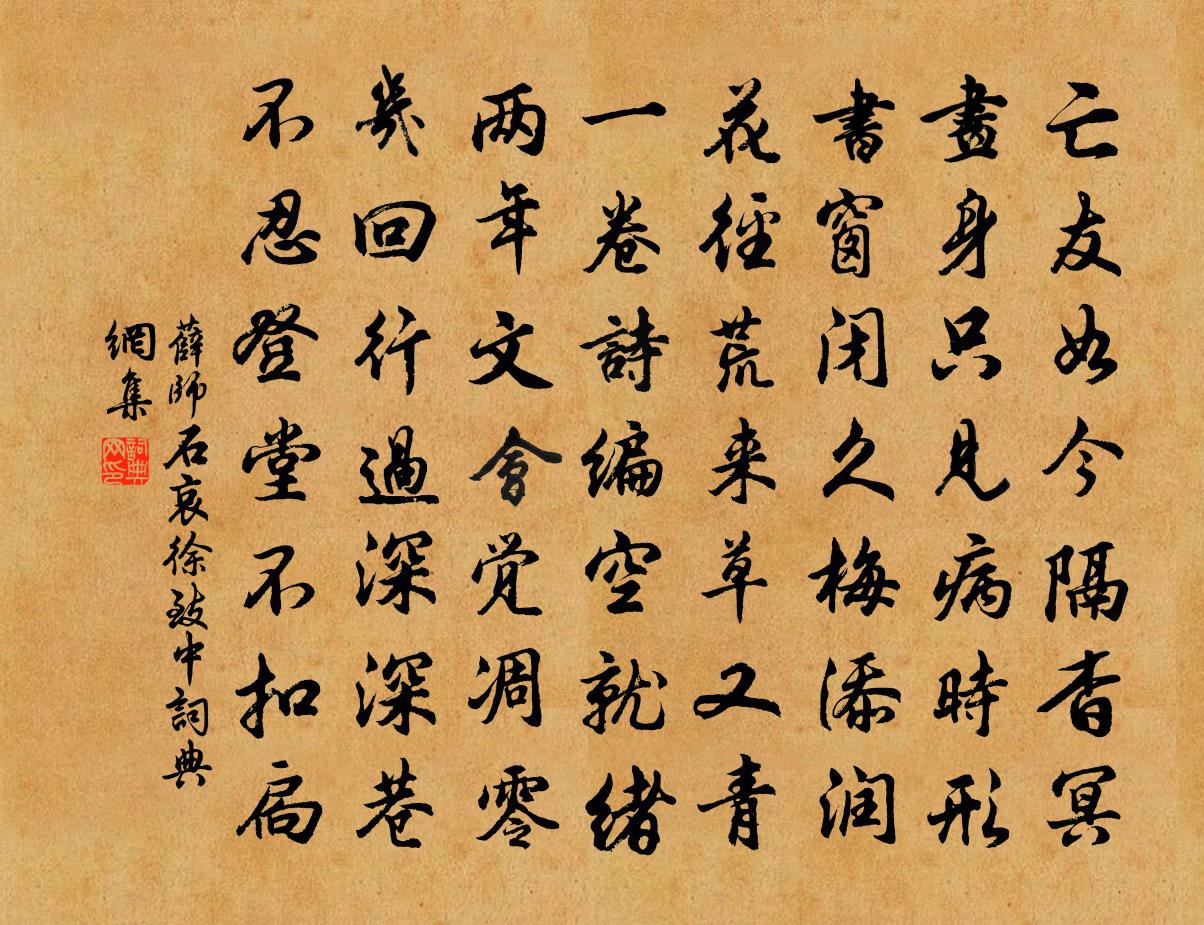 亡友如今隔杳冥
畫身只見病時形
書窗闭久梅添润
花徑荒来草又青
一卷詩编空就绪
两年文會觉凋零
幾回行過深深巷
不忍登堂不扣扃
薛師石哀徐致中詞典
網集
詞典
网印